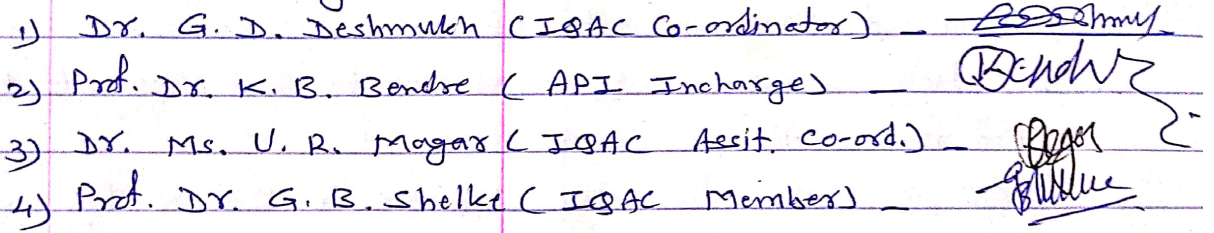 1) Dr. G. D. Deshmukh (IQAC Co-ordinator) -
2) Prof. Dr. K. B. Bendre (API Incharge) -
3) Dr. Ms. U. R. Magar (IQAC Assit. Co-ord.) -
4) Prof. Dr. G. B. Shelke (IQAC Member) -